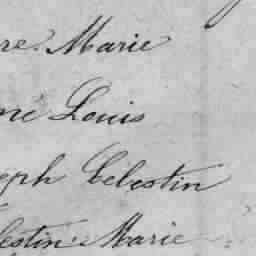 re. Marie
né Louis
eph Celestin
lestin. Marie